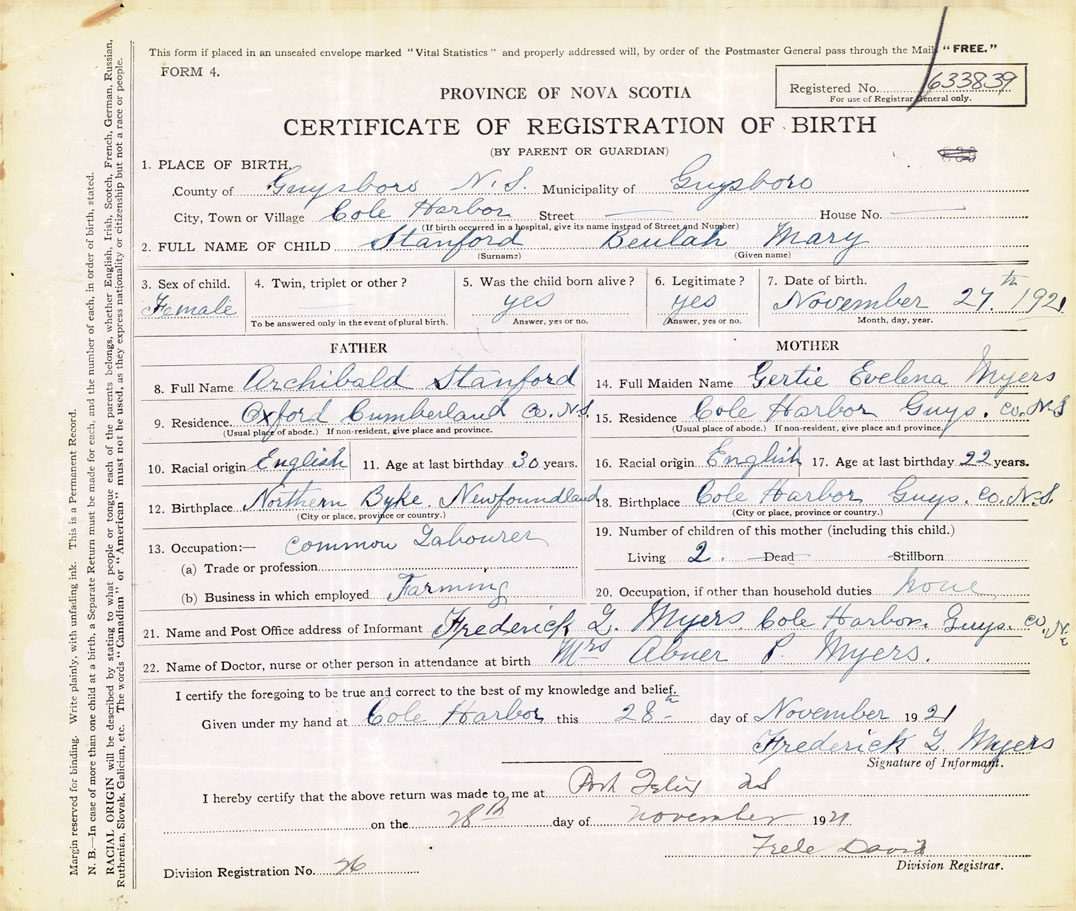 This form if placed in an unsealed envelope marked "Vital Statistics" and properly addressed will, by order of the Postmaster General pass through the Mail "FREE."
FORM 4.
Registered No. 633839
For use of Registrar General only.
PROVINCE OF NOVA SCOTIA
CERTIFICATE OF REGISTRATION OF BIRTH
(BY PARENT OR GUARDIAN)
1. PLACE OF BIRTH.
County of Guysboro N.S. Municipality of Guysboro
City, Town or Village Cole Harbor Street — House No. —
(If birth occurred in a hospital, give its name instead of Street and Number)
2. FULL NAME OF CHILD Stanford Beulah Mary
(Surname) (Given name)
3. Sex of child. 4. Twin, triplet or other? 5. Was the child born alive? 6. Legitimate? 7. Date of birth.
Female yes yes November 27th 1921
To be answered only in the event of plural birth. Answer, yes or no. Answer, yes or no. Month, day, year.
FATHER
8. Full Name Archibald Stanford
9. Residence. Oxford Cumberland Co. N.S
(Usual place of abode.) If non-resident, give place and province.
10. Racial origin English 11. Age at last birthday 30 years.
12. Birthplace Northern Byke. Newfoundland
(City or place, province or country.)
13. Occupation:— Common Labourer
(a) Trade or profession
(b) Business in which employed Farming
MOTHER
14. Full Maiden Name Gertie Evelena Myers
15. Residence Cole Harbor Guys. Co. N.S
(Usual place of abode.) If non-resident, give place and province.
16. Racial origin English 17. Age at last birthday 22 years.
18. Birthplace Cole Harbor Guys. Co. N.S.
(City or place, province or country.)
19. Number of children of this mother (including this child.)
Living 2. Dead Stillborn
20. Occupation, if other than household duties none
21. Name and Post Office address of Informant Frederick L. Myers Cole Harbor. Guys. Co.
22. Name of Doctor, nurse or other person in attendance at birth Mrs Abner P. Myers.
I certify the foregoing to be true and correct to the best of my knowledge and belief.
Given under my hand at Cole Harbor this 28 day of November 1921
Frederick L. Myers
Signature of Informant.
I hereby certify that the above return was made to me at Port Felix
on the 28th day of November 1921
David
Division Registrar.
Division Registration No. 26
Margin reserved for binding. Write plainly, with unfading ink. This is a Permanent Record.
N. B.—In case of more than one child at a birth, a Separate Return must be made for each, and the number of each, in order of birth, stated.
RACIAL ORIGIN will be described by stating to what people or tongue each of the parents belongs, whether English, Irish, Scotch, French, German, Russian,
Ruthenian, Slovak, Galician, etc. The words "Canadian" or "American" must not be used, as they express nationality or citizenship but not a race or people.